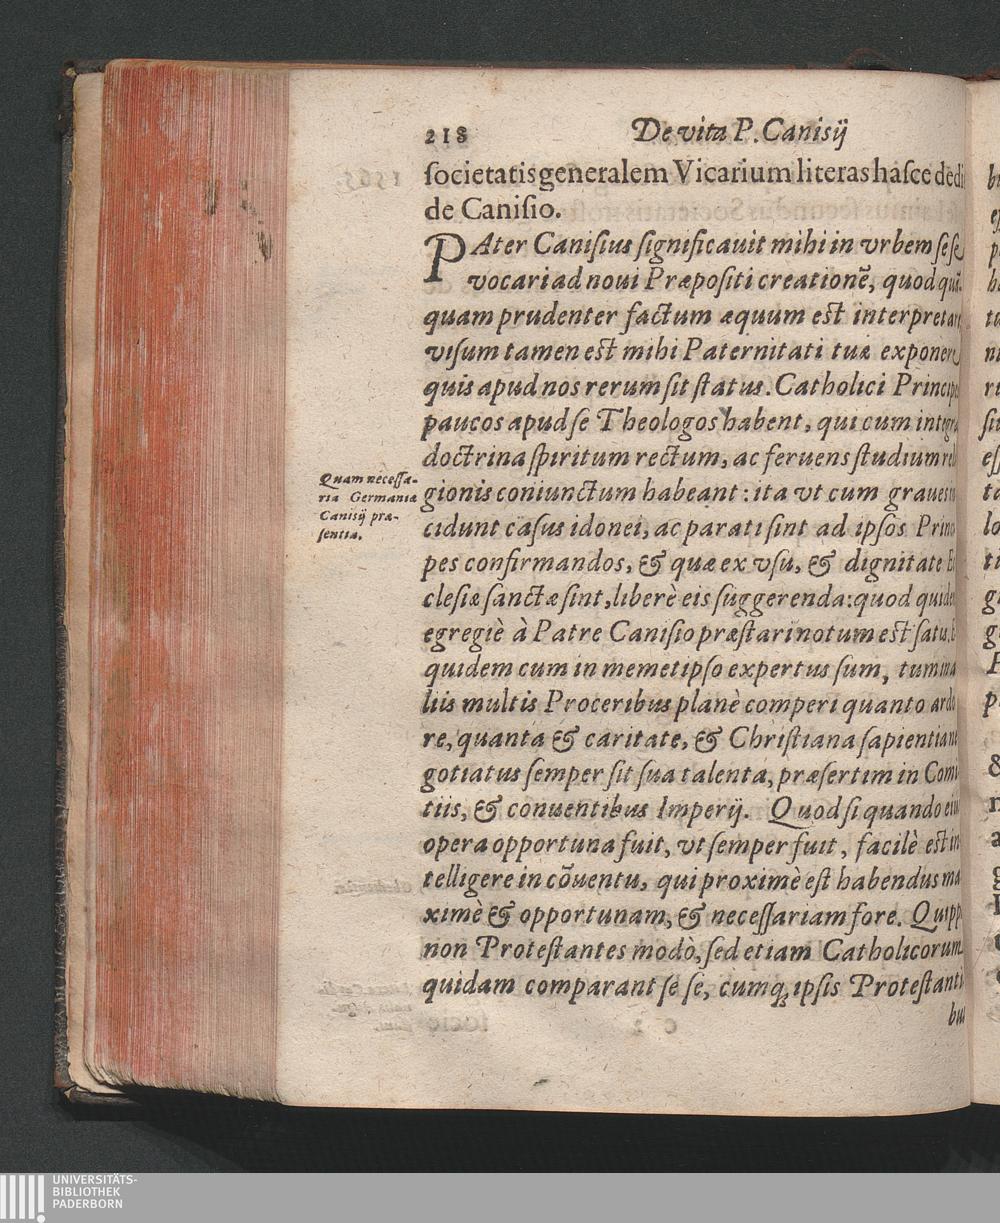 218 De vita P. Canisij
societatis generalem Vicarium literas hasce dedi
de Canisio.
PAter Canisius significauit mihi in vrbem sese
vocari ad noui Præpositi creationẽ, quod quã.
quam prudenter factum æquum est interpretari
visum tamen est mihi Paternitati tuæ exponere
quis apud nos rerum sit status. Catholici Princip
paucos apud se Theologos habent, qui cum integra
doctrina spiritum rectum, ac feruens studium reli
Quam necessa-
ria Germaniæ
Canisij præ-
sentia.
gionis coniunctum habeant: ita vt cum graues in
cidunt casus idonei, ac parati sint ad ipsos Princi
pes confirmandos, & quæ ex vsu, & dignitate Ec
clesiæ sanctæ sint, liberè eis suggerenda: quod quidem
egregiè à Patre Canisio præstari notum est satis. E
quidem cum in memetipso expertus sum, tum in a
liis multis Proceribus planè comperi quanto ardo
re, quanta & caritate, & Christiana sapientia ne
gotiatus semper sit sua talenta, præsertim in Comi
tiis, & conuentibus Imperij. Quod si quando eius
opera opportuna fuit, vt semper fuit, facilè est in
telligere in cõuentu, qui proximè est habendus ma
ximè & opportunam, & necessariam fore. Quippe
non Protestantes modò, sed etiam Catholicorum
quidam comparant se se, cumq; ipsis Protestanti
bus
UNIVERSITÄTS-
BIBLIOTHEK
PADERBORN